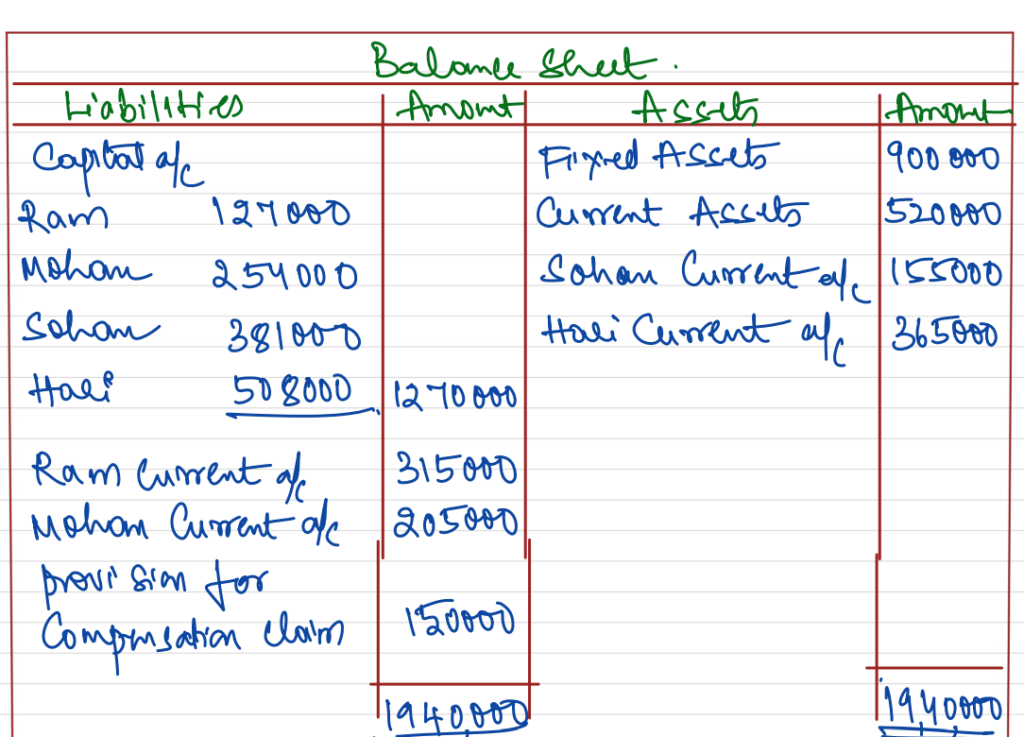 Balance Sheet.
Liabilities Amount Assets Amount
Capital a/c Fixed Assets 900000
Ram 127000 Current Assets 520000
Mohan 254000 Sohan Current a/c 155000
Sohan 381000 Hari Current a/c 365000
Hari 508000 1270000
Ram Current a/c 315000
Mohan Current a/c 205000
provision for
Compensation claim 150000
1940,000 1940000